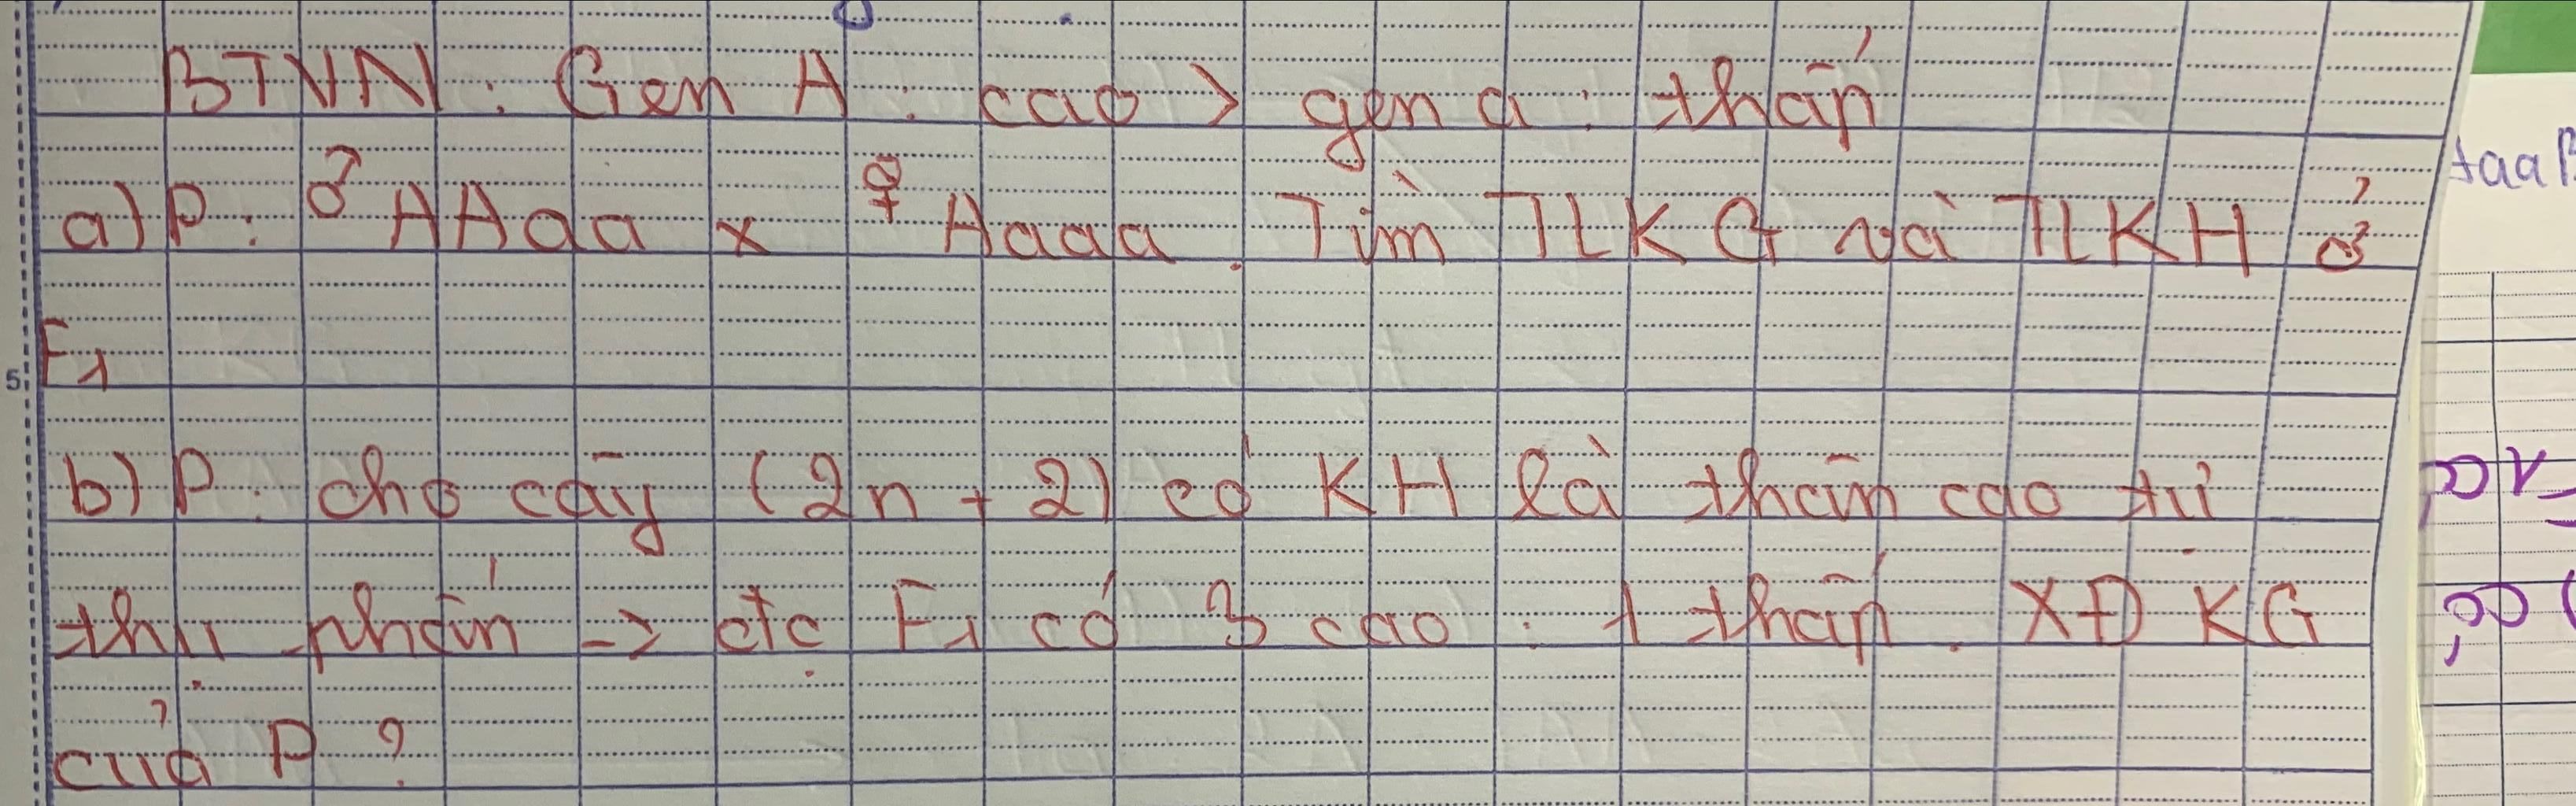 BTVN : Gen A : cao > gen a : thấp
a) P : ♂ AAaa x ♀ Aaaa . Tìm TLKG và TLKH ở
5
F1
b) P : cho cây (2n + 2) có KH là thân cao tự
thụ phấn -> đc F1 có 3 cao : 1 thấp . XĐ KG
của P ?